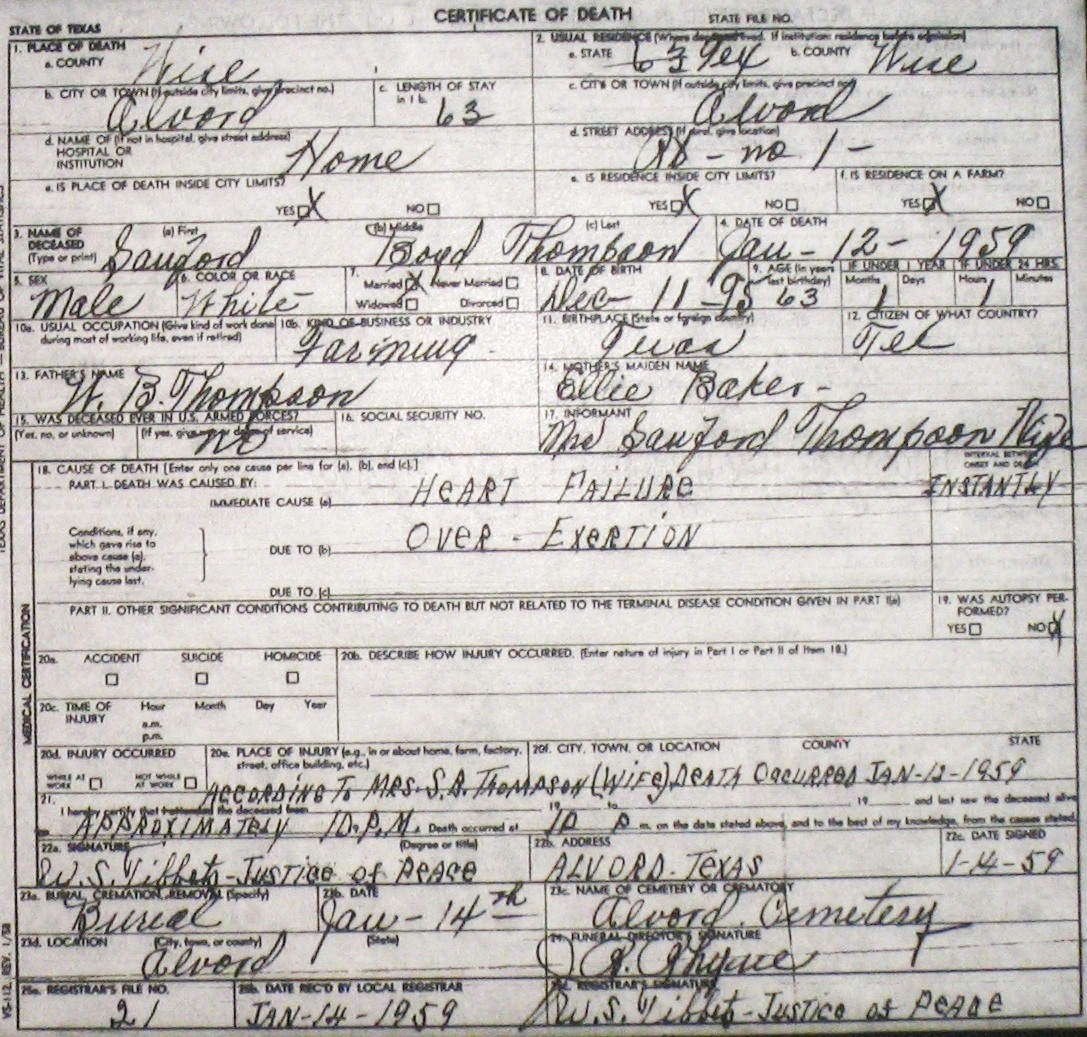 CERTIFICATE OF DEATH
STATE OF TEXAS
STATE FILE NO.
1. PLACE OF DEATH
a. COUNTY Wise
2. USUAL RESIDENCE (Where deceased lived. If institution: residence before admission)
a. STATE 63 Tex b. COUNTY Wise
b. CITY OR TOWN (If outside city limits, give precinct no.) Alvord
c. LENGTH OF STAY in 1 b. 63
c. CITY OR TOWN (If outside city limits, give precinct no.) Alvord
d. NAME OF (If not in hospital, give street address) HOSPITAL OR INSTITUTION Home
d. STREET ADDRESS (If rural, give location) Rd - no 1 -
e. IS PLACE OF DEATH INSIDE CITY LIMITS? YES X NO
e. IS RESIDENCE INSIDE CITY LIMITS? YES X NO
f. IS RESIDENCE ON A FARM? YES X NO
3. NAME OF DECEASED (Type or print) (a) First Sanford (b) Middle Boyd (c) Last Thompson
4. DATE OF DEATH Jan - 12 - 1959
5. SEX Male
6. COLOR OR RACE White
7. Married X Never Married Widowed Divorced
8. DATE OF BIRTH Dec - 11 - 95
9. AGE (In years last birthday) 63
IF UNDER 1 YEAR Months 1 Days
IF UNDER 24 HRS. Hours 1 Minutes
10a. USUAL OCCUPATION (Give kind of work done during most of working life, even if retired)
10b. KIND OF BUSINESS OR INDUSTRY Farming
11. BIRTHPLACE (State or foreign country) Texas
12. CITIZEN OF WHAT COUNTRY? Tex
13. FATHER'S NAME W. B. Thompson
14. MOTHER'S MAIDEN NAME Ellie Baker -
15. WAS DECEASED EVER IN U.S. ARMED FORCES?
(Yes, no, or unknown) (If yes, give war or dates of service) no
16. SOCIAL SECURITY NO.
17. INFORMANT Mrs Sanford Thompson Wife
18. CAUSE OF DEATH [Enter only one cause per line for (a), (b), and (c).]
INTERVAL BETWEEN ONSET AND DEATH
PART I. DEATH WAS CAUSED BY:
IMMEDIATE CAUSE (a) HEART FAILURE INSTANTLY
Conditions, if any, which gave rise to above cause (a), stating the underlying cause last.
DUE TO (b) OVER - EXERTION
DUE TO (c)
PART II. OTHER SIGNIFICANT CONDITIONS CONTRIBUTING TO DEATH BUT NOT RELATED TO THE TERMINAL DISEASE CONDITION GIVEN IN PART I(a)
19. WAS AUTOPSY PERFORMED? YES NO X
MEDICAL CERTIFICATION
20a. ACCIDENT SUICIDE HOMICIDE
20b. DESCRIBE HOW INJURY OCCURRED. (Enter nature of injury in Part I or Part II of Item 18.)
20c. TIME OF INJURY Hour a.m. p.m. Month Day Year
20d. INJURY OCCURRED WHILE AT WORK NOT WHILE AT WORK
20e. PLACE OF INJURY (e.g., in or about home, farm, factory, street, office building, etc.)
20f. CITY, TOWN, OR LOCATION COUNTY STATE
ACCORDING TO MRS. S.B. THOMPSON (WIFE) DEATH OCCURRED JAN-12-1959
21. I hereby certify that I attended the deceased from 19 to 19 and last saw the deceased alive
on APPROXIMATELY 10.P.M. Death occurred at 10 P m. on the date stated above, and to the best of my knowledge, from the causes stated.
22a. SIGNATURE (Degree or title) W.S. Tibbets - JUSTICE of PEACE
22b. ADDRESS ALVORD. TEXAS
22c. DATE SIGNED 1-14-59
23a. BURIAL, CREMATION, REMOVAL (Specify) Burial
23b. DATE Jan - 14th
23c. NAME OF CEMETERY OR CREMATORY Alvord Cemetery
23d. LOCATION (City, town, or county) (State) Alvord
24. FUNERAL DIRECTOR'S SIGNATURE
25a. REGISTRAR'S FILE NO. 21
25b. DATE REC'D BY LOCAL REGISTRAR JAN-14-1959
25c. REGISTRAR'S SIGNATURE W.S. Tibbets - JUSTICE of PEACE
VS-112, REV. 1/58